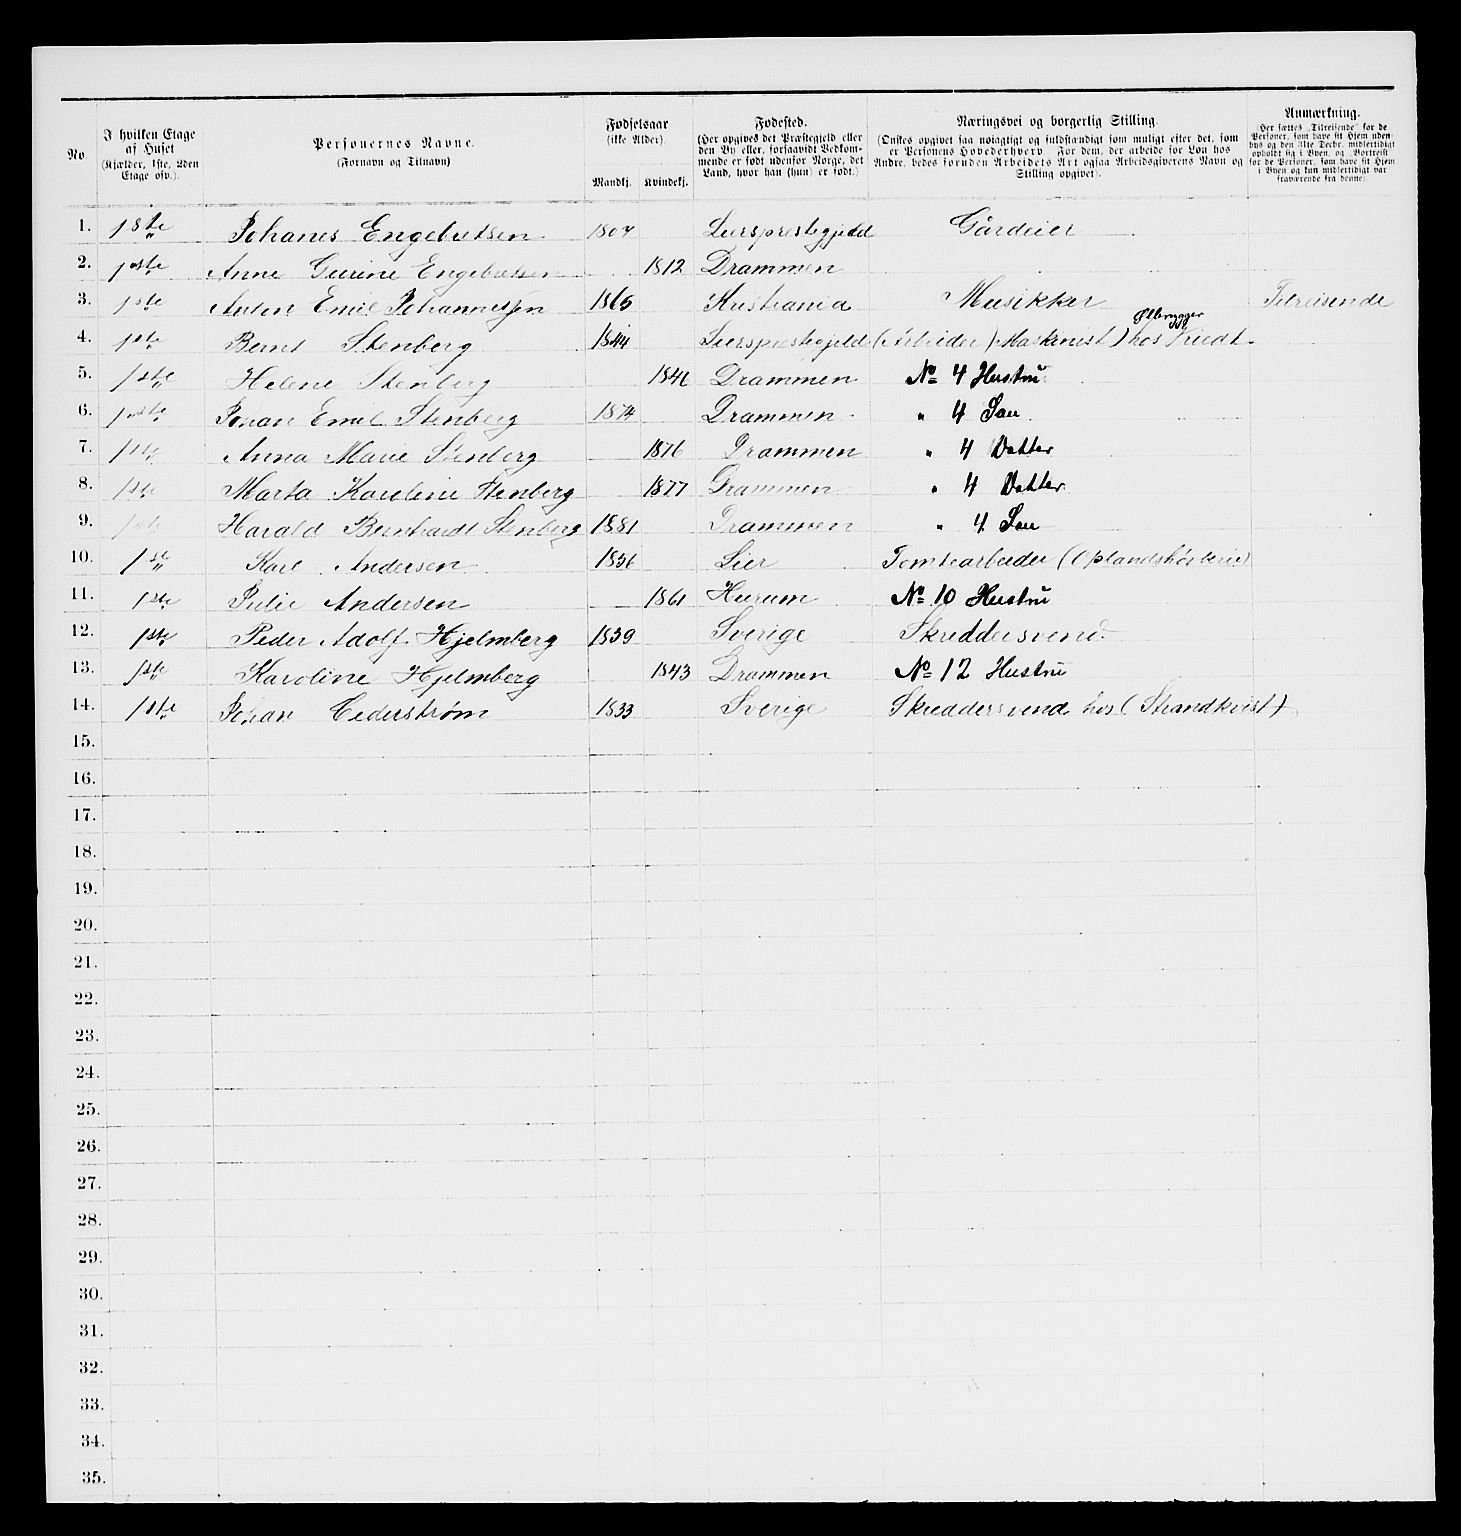 No.
I hvilken Etage af Huset (Kjælder, 1ste, 2den Etage osv.).
Personernes Navne. (Fornavn og Tilnavn)
Fødselsaar (ikke Alder). Mandkj. Kvindekj.
Fødested. (Her opgives det Præstegjeld eller den By eller, forsaavidt Vedkommende er født udenfor Norge, det Land, hvor han (hun) er født.)
Næringsvei og borgerlig Stilling. (Ønskes opgivet saa nøiagtigt og fuldstændigt som muligt efter det, som er Personens Hovederhverv. For dem, der arbeide for Løn hos Andre, bedes foruden Arbeidets Art ogsaa Arbeidsgiverens Navn og Stilling opgivet).
Anmærkning. (Her sættes „Tilreisende" for de Personer, som have sit Hjem udenbys og den 31te Decbr. midlertidigt opholdt sig i Byen, og „Bortreist" for de Personer, som have sit Hjem i Byen og kun midlertidigt var fraværende fra denne).
1. 1ste Johanes Engebretsen 1807 Lierspresteg­jeld Gårdeier
2. 1ste Anne Gurine Engebretsen 1812 Drammen
3. 1ste Anton Emil Johannessen 1865 Kristiania Musikker Tilreisende
4. 1ste Bernt Stenberg 1844 Lierspresteg­jeld (Arbeider) Maskinist) hos Ølbrygger
5. 1ste Helene Stenberg 1846 Drammen No 4 Hustru
6. 1ste Johan Emil Stenberg 1874 Drammen " 4 Søn
7. 1ste Anna Marie Stenberg 1876 Drammen " 4 Datter
8. 1ste Marta Karoline Stenberg 1877 Drammen " 4 Datter
9. 1ste Harald Bernhardt Stenberg 1881 Drammen " 4 Søn
10. 1ste Karl Andersen 1856 Lier Tomtearbeider
11. 1ste Julie Andersen 1861 Hurum No 10 Hustru
12. 1ste Peder Adolf Hjelmberg 1839 Sverige Skreddersvend
13. 1ste Karoline Hjelmberg 1843 Drammen No 12 Hustru
14. 1ste Johan Cederstrøm 1833 Sverige Skreddersvend hos (Strandkvist)
15.
16.
17.
18.
19.
20.
21.
22.
23.
24.
25.
26.
27.
28.
29.
30.
31.
32.
33.
34.
35.